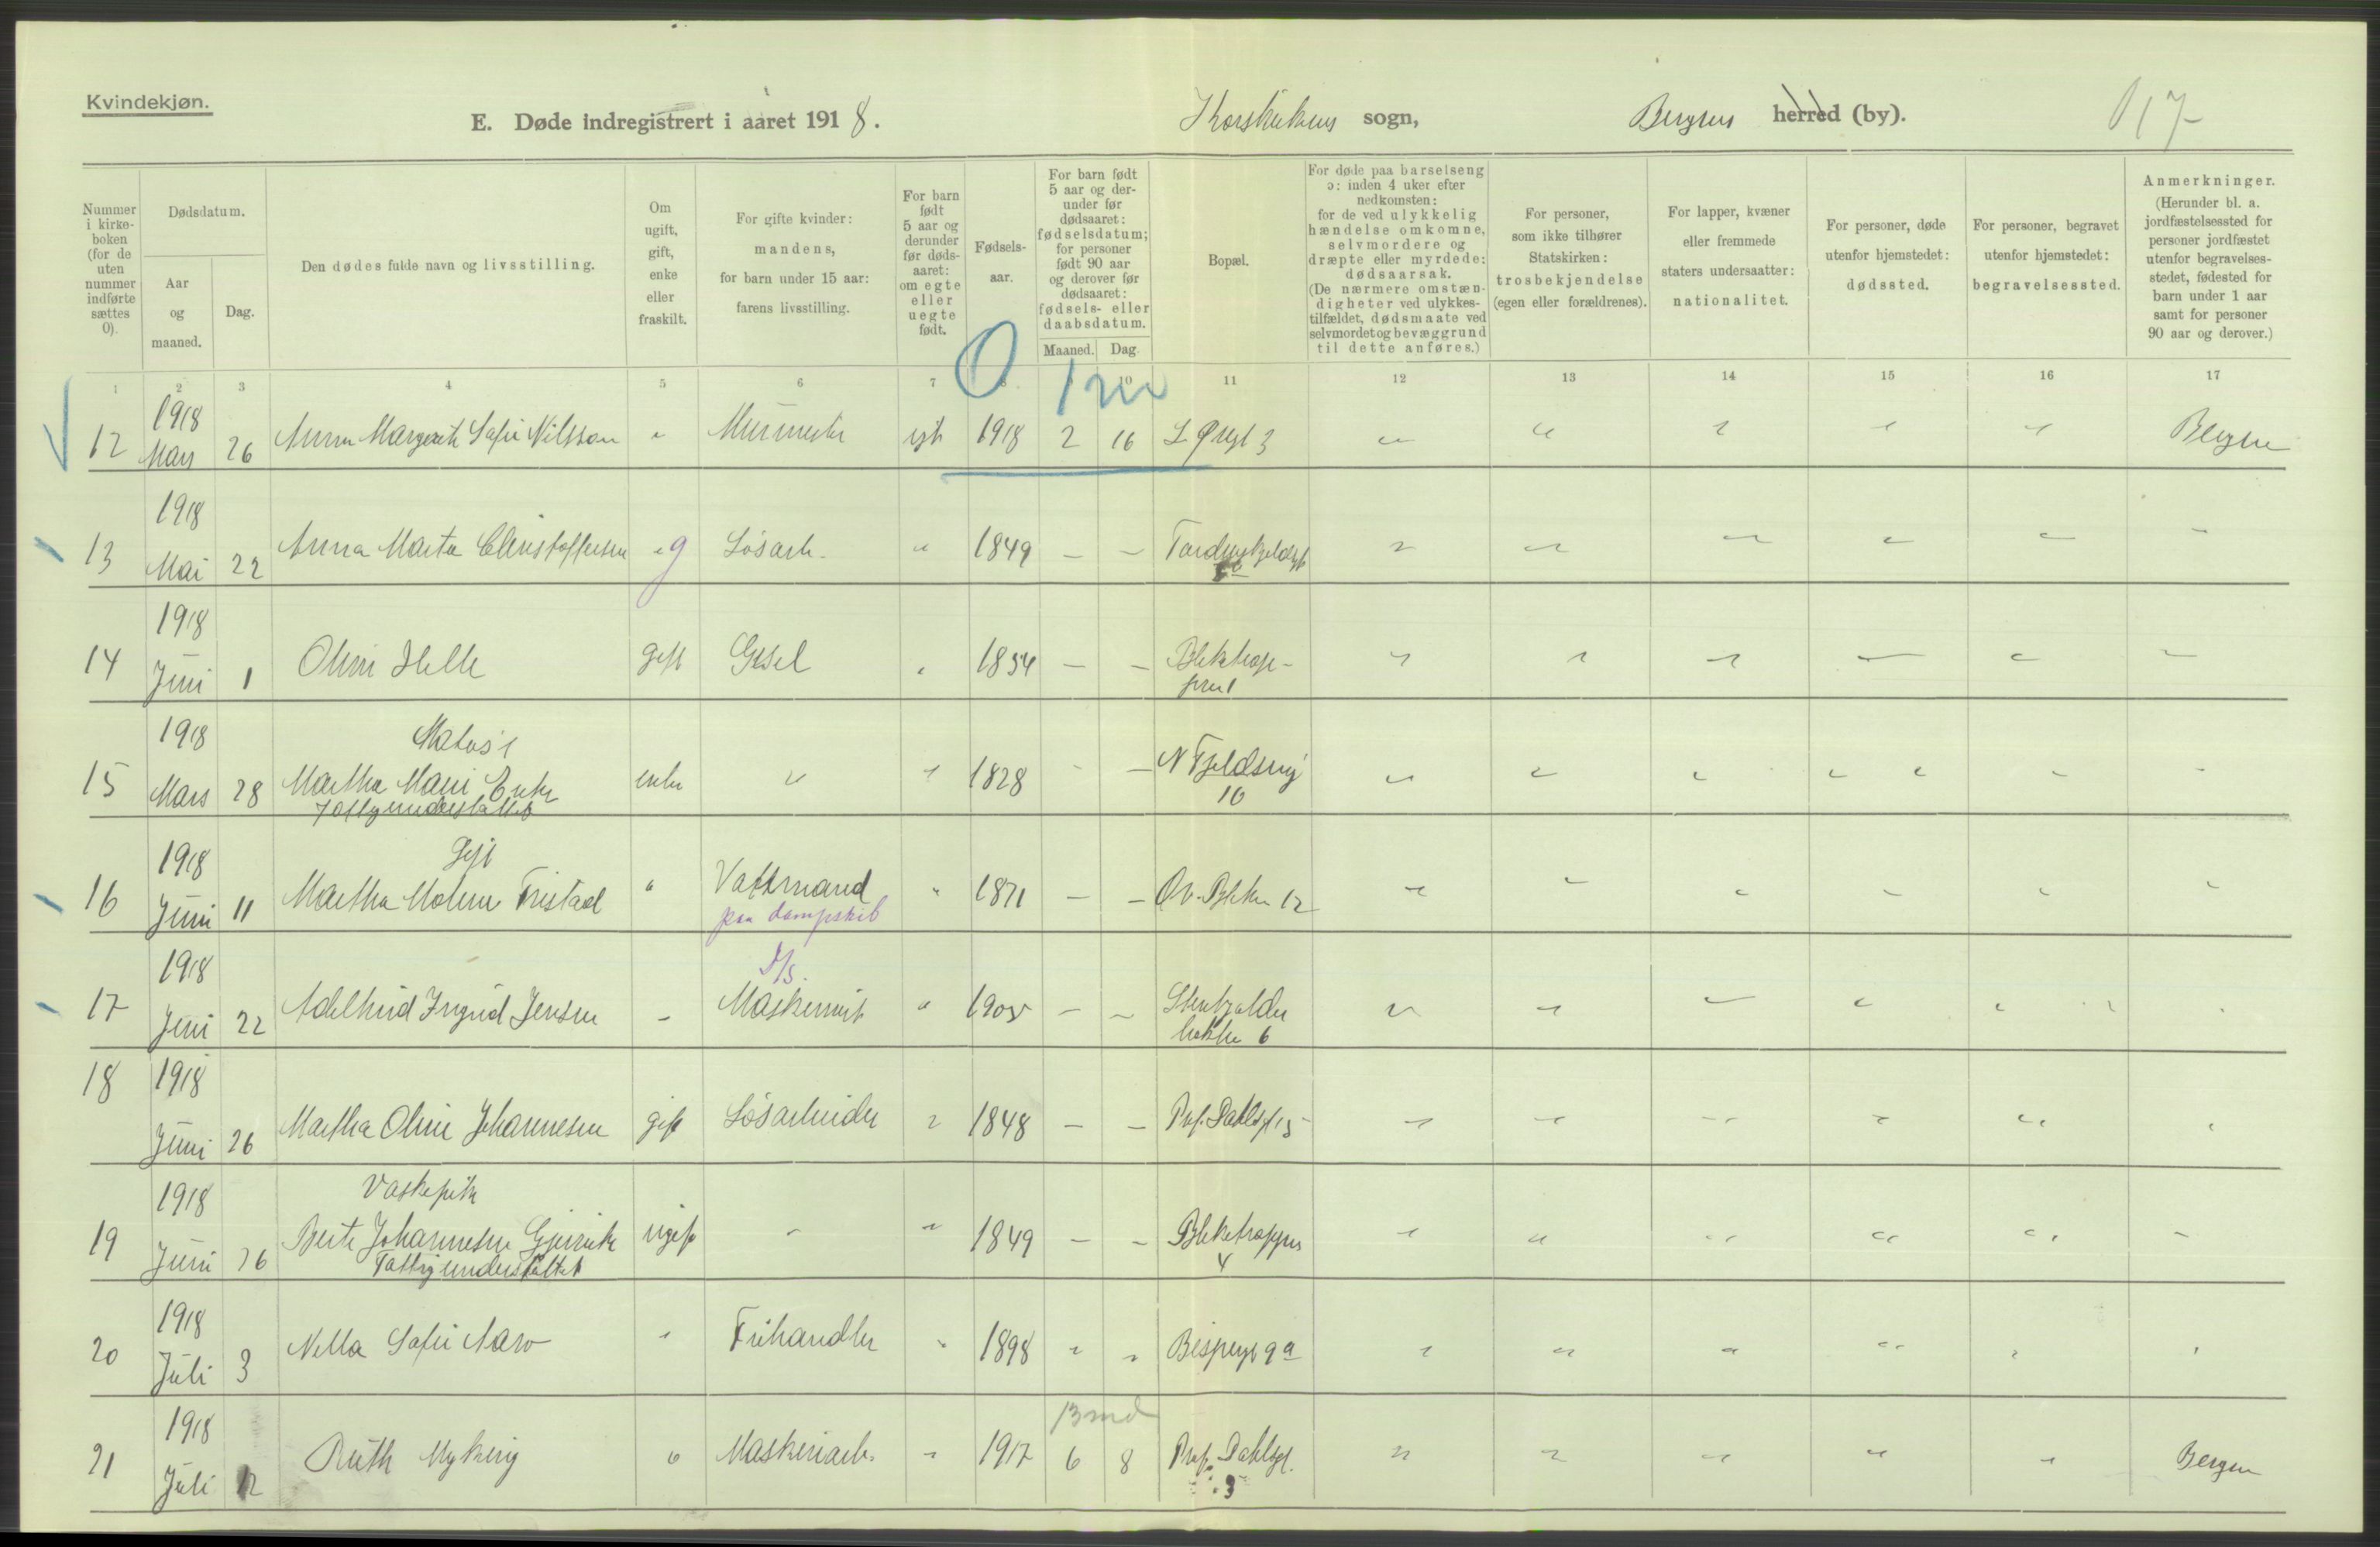 Kvindekjøn.
E. Døde indregistrert i aaret 1918.
Korskirkens sogn,
Bergens herred (by).
117
Nummer i kirkeboken (for de uten nummer indførte sættes 0).
Dødsdatum.
Aar og maaned.
Dag.
Den dødes fulde navn og livsstilling.
Om ugift, gift, enke eller fraskilt.
For gifte kvinder: mandens, for barn under 15 aar: farens livsstilling.
For barn født 5 aar og derunder før dødsaaret: om egte eller uegte født.
Fødselsaar.
For barn født 5 aar og derunder før dødsaaret: fødselsdatum; for personer født 90 aar og derover før dødsaaret: fødsels- eller daabsdatum.
Maaned.
Dag.
Bopæl.
For døde paa barselseng ɔ: inden 4 uker efter nedkomsten: for de ved ulykkelig hændelse omkomne, selvmordere og dræpte eller myrdede: dødsaarsak. (De nærmere omstændigheter ved ulykkestilfældet, dødsmaate ved selvmordet og bevæggrund til dette anføres.)
For personer, som ikke tilhører Statskirken: trosbekjendelse (egen eller forældrenes).
For lapper, kvæner eller fremmede staters undersaatter: nationalitet.
For personer, døde utenfor hjemstedet: dødssted.
For personer, begravet utenfor hjemstedet: begravelsessted.
Anmerkninger. (Herunder bl. a. jordfæstelsessted for personer jordfæstet utenfor begravelsesstedet, fødested for barn under 1 aar samt for personer 90 aar og derover.)
1 2 3 4 5 6 7 8 10 11 12 13 14 15 16 17
0 1 m
12 1918 Mars 26 Anna Margrethe Sofie Nilsson " Murmester egte 1918 2 16 Bergen
13 1918 Mai 22 Anna Marta Christoffersen " g Løsarb. " 1849 — — Tordenskjoldsgt
14 1918 Juni 1 Oline Helle gift Gsel " 1854 — —
15 1918 Mars 28 Martha Marie enke " " 1828 — N Fjeldsvej 10
Fattigunderstøttet
16 1918 Juni 11 Gift Martha Malene Fristad " Vattmand " 1871 — — Øv. Blekev 12
paa dampskib
D/S.
17 1918 Juni 22 Adelheid Ingrid Jensen — Maskinist " 1905 — — 6
18 1918 Juni 26 Martha Oline Johannesen gift Løsarbeider " 1848 — — Prof. Dahlsgt 15
19 1918 Juni 26 Vaskepike Berte Johannesen ugift " " 1849 — — Bleketrappen 4
Fattigunderstøttet
20 1918 Juli 3 Nella Sofie " Frihandler " 1898 " " Bispengt 9a
21 1918 Juli 12 Ruth Myking " Maskinarb. " 1917 6 8 Prof. Dahlsgt. 3 Bergen
13 md